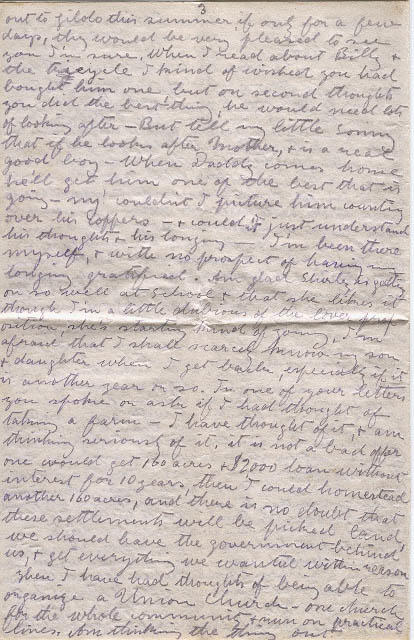 3
out to Gildo this summer, if only for a few
days, they would be very pleased to see
you I'm sure. When I read about Billy &
the tricycle I kind of wished you had
bought him one but on second thoughts
you did the best thing, he would need lots
of looking after – But tell my little sonny
that if he looks after Mother, & is a real
good boy – When Daddy comes home
he'll get him one of the best that is
going – my, couldn't I picture him counting
over his coppers – & could just understand
his thoughts & his longing – I'm been there
myself, & with no prospect of having my
longing gratified. Am glad Shirley is getting
on so well at School & that she likes it
though I'm a little dubious of the
she's starting kind of young, I'm
afraid that I shall scarcely know my son
& daughter when I get back especially if it
is another year or so. In one of your letters
you spoke or asked if I had thought of
taking a farm – I have thought of it, & am
thinking seriously of it, it is not a bad offer
one would get 160 acres & $2000 loan without
interest for 10 years, then I could homestead
another 160 acres, and there is no doubt that
these settlements will be picked land,
we should have the government behind
us, & get everything we wanted within reason
Then I have had thoughts of being able to
organize a Union Church – one church
for the whole community & run on practical
lines, Am thinking the thing out